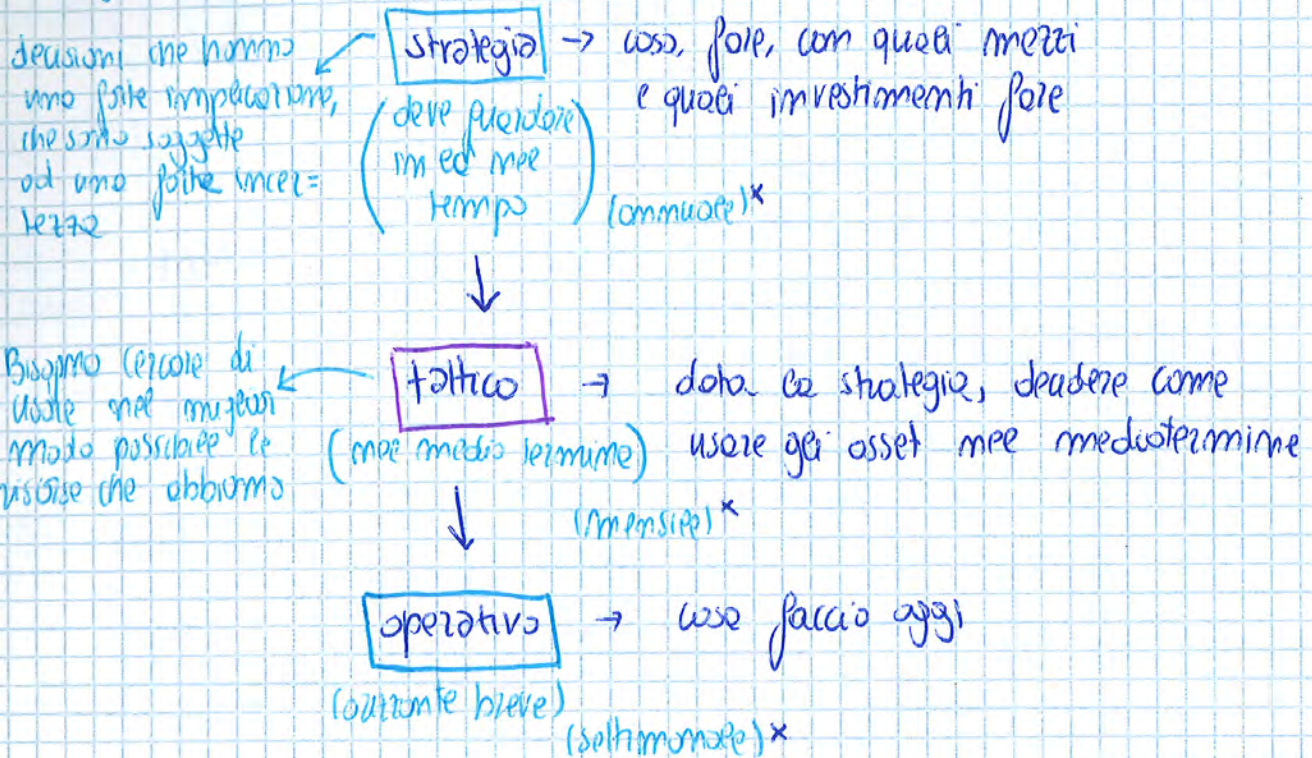 decisioni che hanno
una forte implicazione,
che sono soggette
ad una forte incer=
tezza
strategia → cosa, fare, con quali mezzi
e quali investimenti fare
(deve guardare
in là nel
tempo)
(annuale)*
↓
Bisogna cercare di
usare nel miglior
modo possibile le
risorse che abbiamo
tattico → data la strategia, decidere come
usare gli asset nel mediotermine
(nel medio termine)
(mensile)*
↓
operativo → cosa faccio oggi
(orizzonte breve)
(settimanale)*